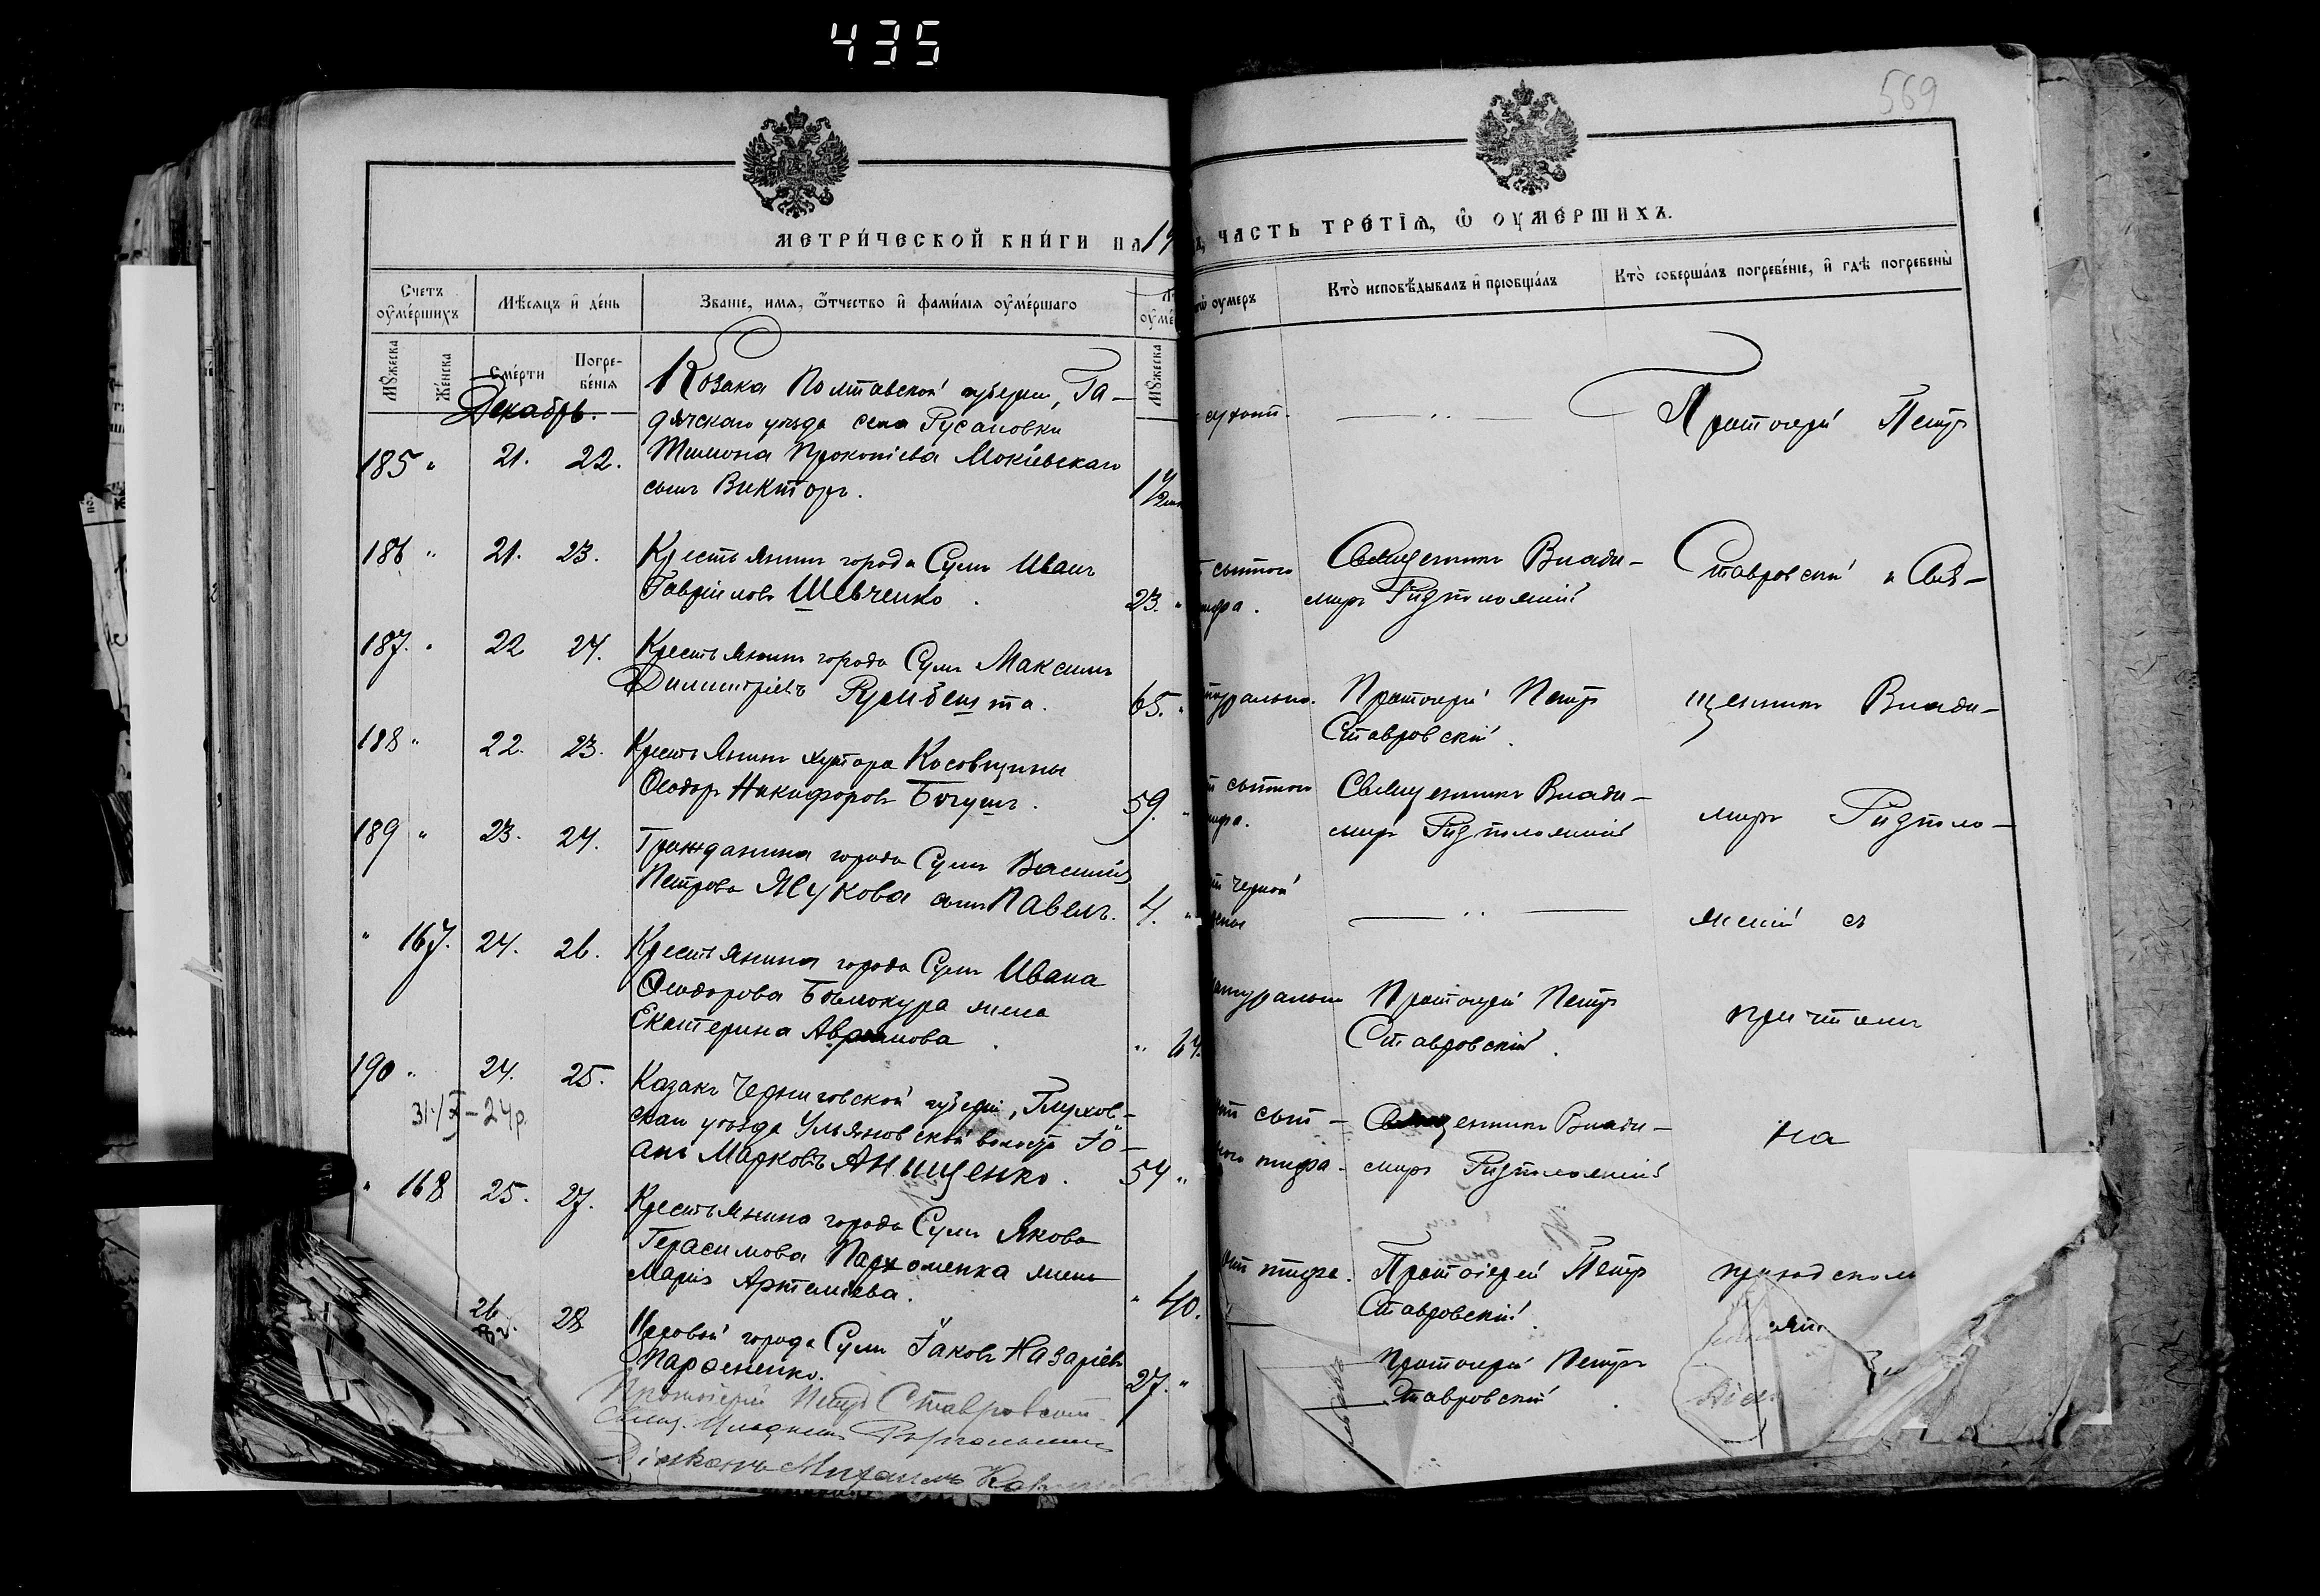 435
569
МЕТРИ́ЧЕСКОЙ КНИ́ГИ НА 19
ЧАСТЬ ТРЕ́ТІѦ, Ѡ ОУМЕ́РШИХЪ.
Счетъ оумє́ршихъ
Мѣсяцъ и де́нь
Званіе, имя, ѿтчество и фами́лія оумє́ршаго
оумеръ
Кто̀ исповѣ́дывалъ и пріобща́лъ
Кто̀ соверша́лъ погребе́ніе, и гдѣ погребены̀
Мꙋжеска
Же́нска
Сме́рти
Погребе́нія
Мꙋжеска
Декабрь.
Козака Полтавской губерніи, Га-
дячскаго уѣзда села Русановки
185 " 21. 22. Тимона Прокопіева Мокіевскаго
сынъ Викторъ.
Протоіерей Петръ
186 " 21. 23. Крестьянинъ города Сумъ Иванъ
Гавріиловъ Шевченко. 23. "
сыпного Священникъ Влади-
миръ
Ставровскій и Свя-
187. " 22 24. Крестьянинъ города Сумъ Максимъ
Димитріевъ 65. "
Протоіерей Петръ
Ставровскій.
щенникъ Влади-
188 " 22. 23. Крестьянинъ хутора Косовщины
Ѳеодоръ Никифоровъ Богушъ. 59. "
сыпного Священникъ Влади-
миръ
миръ
189 " 23. 24. Гражданина города Сумъ Василія
Петрова Жукова сынъ Павелъ. 4. "
черной
скій съ
" 167. 24. 26. Крестьянина города Сумъ Ивана
Ѳеодорова Бѣлокура жена
Екатерина Аврамова. "
Протоіерей Петръ
Ставровскій.
причтомъ
190 " 24. 25. Казакъ Черниговской губерніи, Глухов-
скаго уѣзда Ульяновской волости Іо-
анъ Марковъ Анищенко. 54 "
сып-
ного тифа. Священникъ Влади-
миръ
на
" 168 25. 27. Крестьянина города Сумъ Якова
Герасимова Пархоменка жена
Марія Артеміева. " 40.
тифа. Протоіерей Петръ
Ставровскій.
приходскомъ
26 28 города Сумъ Іаковъ Назаріевъ
Парѳененко. 27. "
Протоіерей Петръ
Ставровскій.
Протоіерей Петръ Ставровскій
Діаконъ Михаилъ